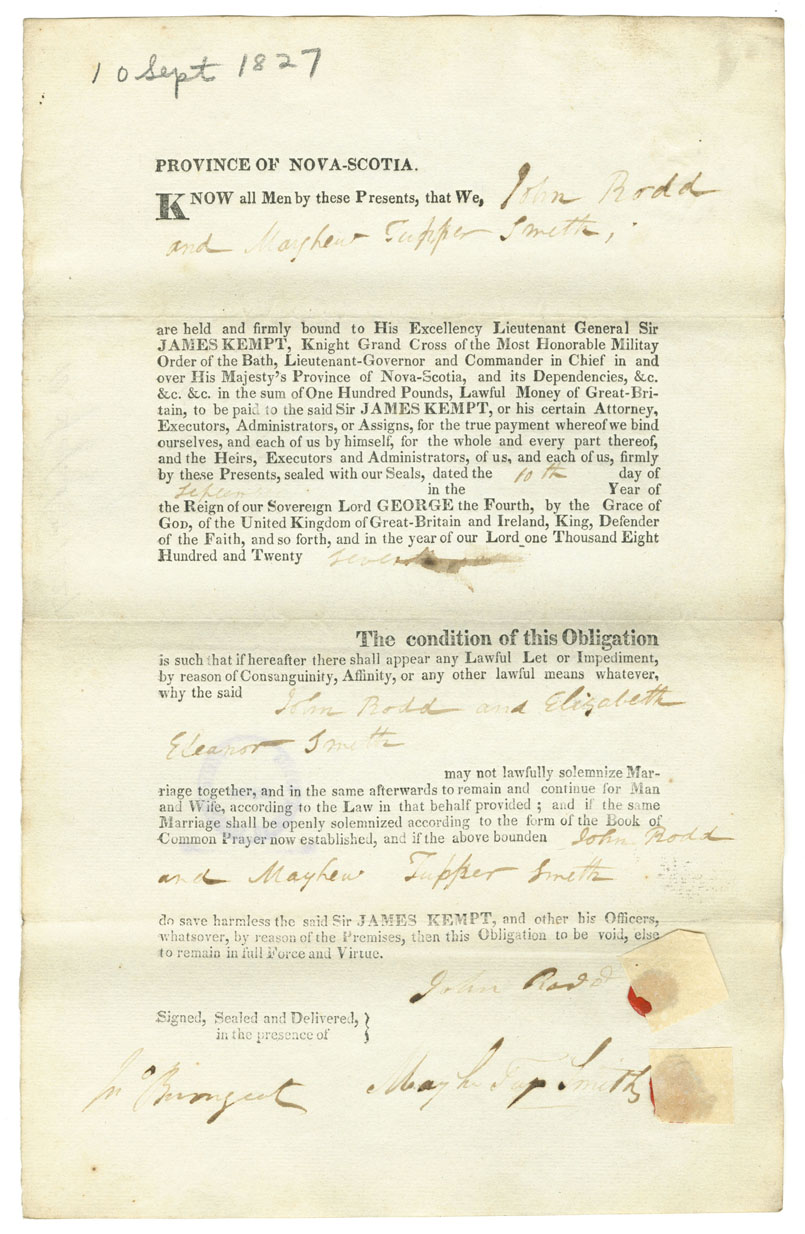 10 Sept 1827
PROVINCE OF NOVA-SCOTIA.
KNOW all Men by these Presents, that We, John Rodd
and Mayhew Tupper Smith,
are held and firmly bound to His Excellency Lieutenant General Sir
JAMES KEMPT, Knight Grand Cross of the Most Honorable Militay
Order of the Bath, Lieutenant-Governor and Commander in Chief in and
over His Majesty's Province of Nova-Scotia, and its Dependencies, &c.
&c. &c. in the sum of One Hundred Pounds, Lawful Money of Great-Bri-
tain, to be paid to the said Sir JAMES KEMPT, or his certain Attorney,
Executors, Administrators, or Assigns, for the true payment whereof we bind
ourselves, and each of us by himself, for the whole and every part thereof,
and the Heirs, Executors and Administrators, of us, and each of us, firmly
by these Presents, sealed with our Seals, dated the 10th day of
in the Year of
the Reign of our Sovereign Lord GEORGE the Fourth, by the Grace of
GOD, of the United Kingdom of Great-Britain and Ireland, King, Defender
of the Faith, and so forth, and in the year of our Lord one Thousand Eight
Hundred and Twenty
The condition of this Obligation
is such that if hereafter there shall appear any Lawful Let or Impediment,
by reason of Consanguinity, Affinity, or any other lawful means whatever,
why the said John Rodd and Elizabeth
Eleanor Smith
may not lawfully solemnize Mar-
riage together, and in the same afterwards to remain and continue for Man
and Wife, according to the Law in that behalf provided ; and if the same
Marriage shall be openly solemnized according to the form of the Book of
Common Prayer now established, and if the above bounden John Rodd
and Mayhew Tupper Smith
do save harmless the said Sir JAMES KEMPT, and other his Officers,
whatsover, by reason of the Premises, then this Obligation to be void, else
to remain in full Force and Virtue.
John Rodd
Signed, Sealed and Delivered,
in the presence of
Mayh Tup Smith